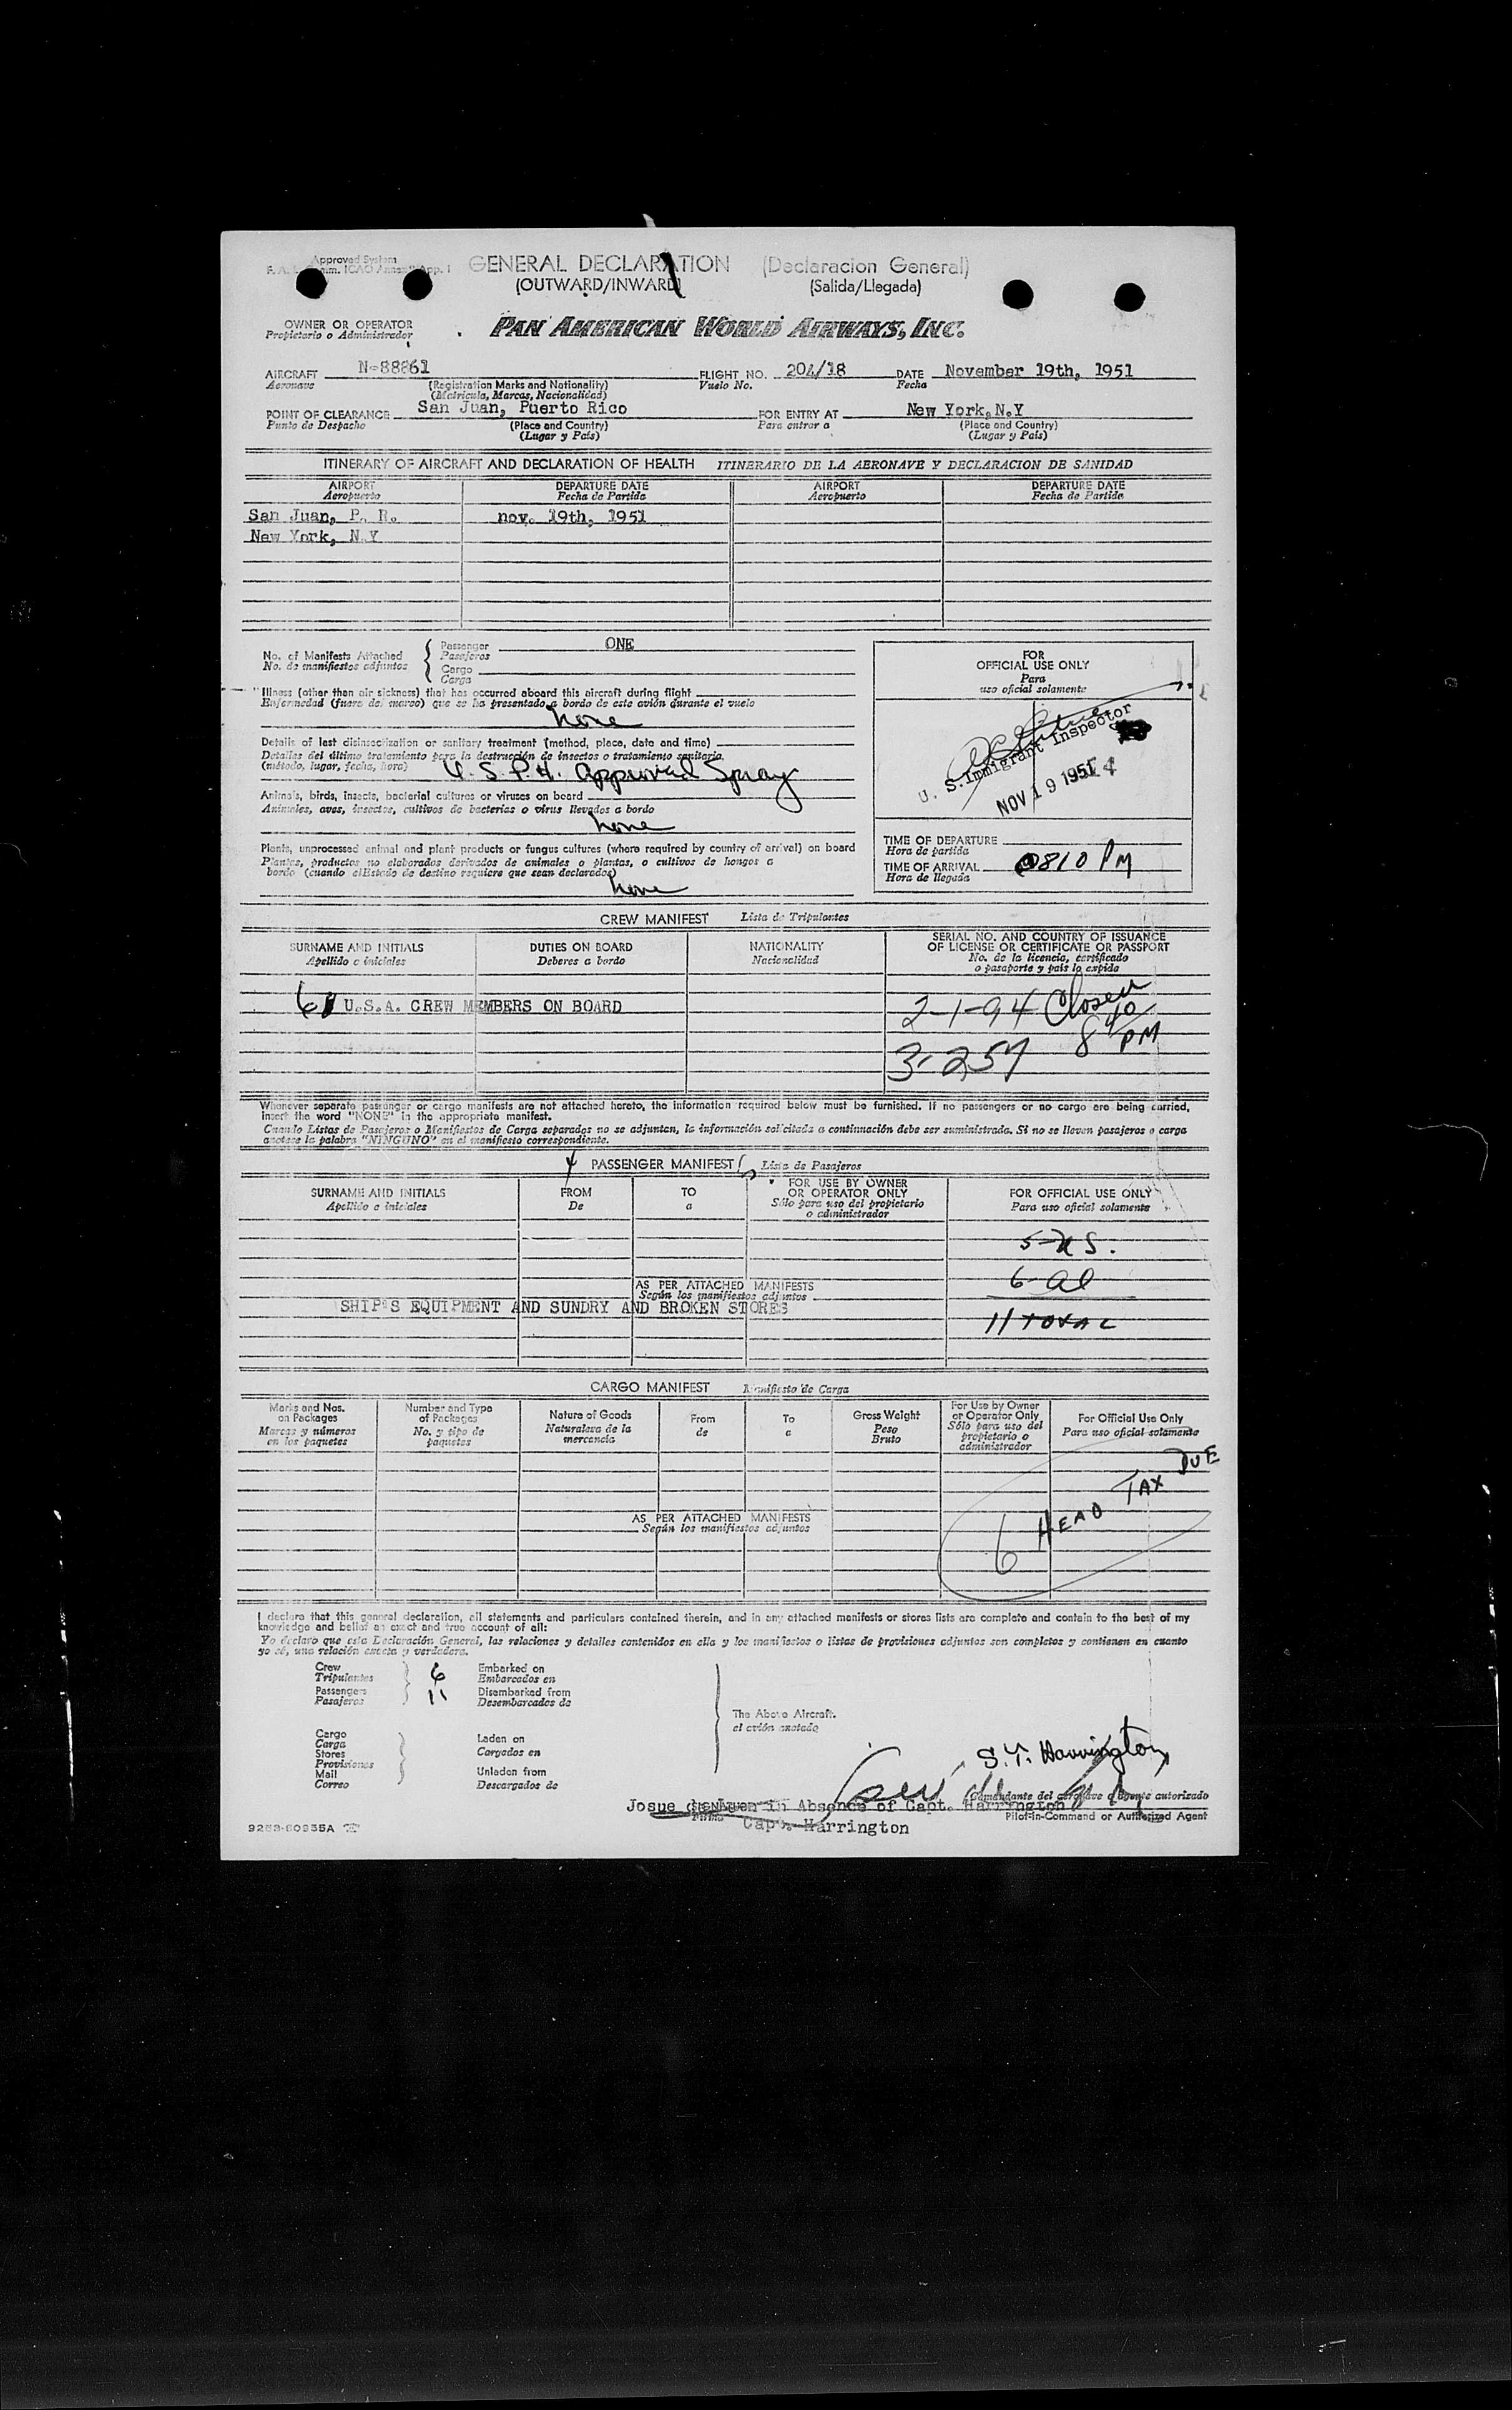 Approved System
GENERAL DECLARATION (Declaracion General)
(OUTWARD/INWARD) (Salida/Llegada)
OWNER OR OPERATOR
Propietario o Administrador
PAN AMERICAN WORLD AIRWAYS, INC.
AIRCRAFT N-88861 FLIGHT NO. 204/18 DATE November 19th, 1951
Aeronave (Registration Marks and Nationality) Vuelo No. Fecha
(Matricula, Marcas, Nacionalidad)
POINT OF CLEARANCE San Juan, Puerto Rico FOR ENTRY AT New York, N.Y
Punto de Despacho (Place and Country) Para entrar a (Place and Country)
(Lugar y País) (Lugar y País)
ITINERARY OF AIRCRAFT AND DECLARATION OF HEALTH ITINERARIO DE LA AERONAVE Y DECLARACION DE SANIDAD
AIRPORT DEPARTURE DATE AIRPORT DEPARTURE DATE
Aeropuerto Fecha de Partida Aeropuerto Fecha de Partida
San Juan, P. R. nov. 19th, 1951
New York, N.Y
No. of Manifests Attached
No. de manifiestos adjuntos
Passenger ONE
Pasajeros
Cargo
Carga
Illness (other than air sickness) that has occurred aboard this aircraft during flight
Enfermedad (fuera del mareo) que se ha presentado a bordo de este avión durante el vuelo
none
Details of last disinsectization or sanitary treatment (method, place, date and time)
Detalles del último tratamiento para la destrucción de insectos o tratamiento sanitario
(método, lugar, fecha, hora) U.S.P.H. approved Spray
Animals, birds, insects, bacterial cultures or viruses on board
Animales, aves, insectos, cultivos de bacterias o virus llevados a bordo
none
Plants, unprocessed animal and plant products or fungus cultures (where required by country of arrival) on board
Plantas, productos no elaborados derivados de animales o plantas, o cultivos de hongos a
bordo (cuando el Estado de destino requiere que sean declarados)
none
FOR
OFFICIAL USE ONLY
Para
uso oficial solamente
U. S. Immigrant Inspector
NOV 19 1951
TIME OF DEPARTURE
Hora de partida
TIME OF ARRIVAL 810 PM
Hora de llegada
CREW MANIFEST Lista de Tripulantes
SURNAME AND INITIALS DUTIES ON BOARD NATIONALITY SERIAL NO. AND COUNTRY OF ISSUANCE
OF LICENSE OR CERTIFICATE OR PASSPORT
Apellido e iniciales Deberes a bordo Nacionalidad No. de la licencia, certificado
o pasaporte y país lo expide
6 U.S.A. CREW MEMBERS ON BOARD
2-1-94 Closed
8 40 PM
3-257
Whenever separate passenger or cargo manifests are not attached hereto, the information required below must be furnished. If no passengers or no cargo are being carried,
insert the word "NONE" in the appropriate manifest.
Cuando Listas de Pasajeros o Manifiestos de Carga separados no se adjuntan, la información solicitada a continuación debe ser suministrada. Si no se llevan pasajeros o carga
anotese la palabra "NINGUNO" en el manifiesto correspondiente.
PASSENGER MANIFEST Lista de Pasajeros
SURNAME AND INITIALS FROM TO FOR USE BY OWNER
OR OPERATOR ONLY FOR OFFICIAL USE ONLY
Apellido e iniciales De a Sólo para uso del propietario
o administrador Para uso oficial solamente
5-U.S.
6-al
11 TOTAL
AS PER ATTACHED MANIFESTS
Según los manifiestos adjuntos
SHIP'S EQUIPMENT AND SUNDRY AND BROKEN STORES
CARGO MANIFEST Manifiesto de Carga
Marks and Nos.
on Packages
Marcas y números
en los paquetes
Number and Type
of Packages
No. y tipo de
paquetes
Nature of Goods
Naturaleza de la
mercancia
From
de
To
a
Gross Weight
Peso
Bruto
For Use by Owner
or Operator Only
Sólo para uso del
propietario o
administrador
For Official Use Only
Para uso oficial solamente
AS PER ATTACHED MANIFESTS
Según los manifiestos adjuntos
6 HEAD TAX DUE
I declare that this general declaration, all statements and particulars contained therein, and in any attached manifests or stores lists are complete and contain to the best of my
knowledge and belief an exact and true account of all:
Yo declaro que esta Declaración General, las relaciones y detalles contenidos en ella y los manifiestos o listas de provisiones adjuntos son completos y contienen en cuanto
yo sé, una relación exacta y verdadera.
Crew 6 Embarked on
Tripulantes Embarcados en
Passengers 11 Disembarked from
Pasajeros Desembarcados de
The Above Aircraft.
el avión anotado
Cargo
Carga
Stores
Provisiones
Mail
Correo
Laden on
Cargados en
Unladen from
Descargados de
S.T. Harrington
Comandante del aeronave o agente autorizado
Josue in Absence of Capt. Harrington
Pilot-in-Command or Authorized Agent
Capt. Harrington